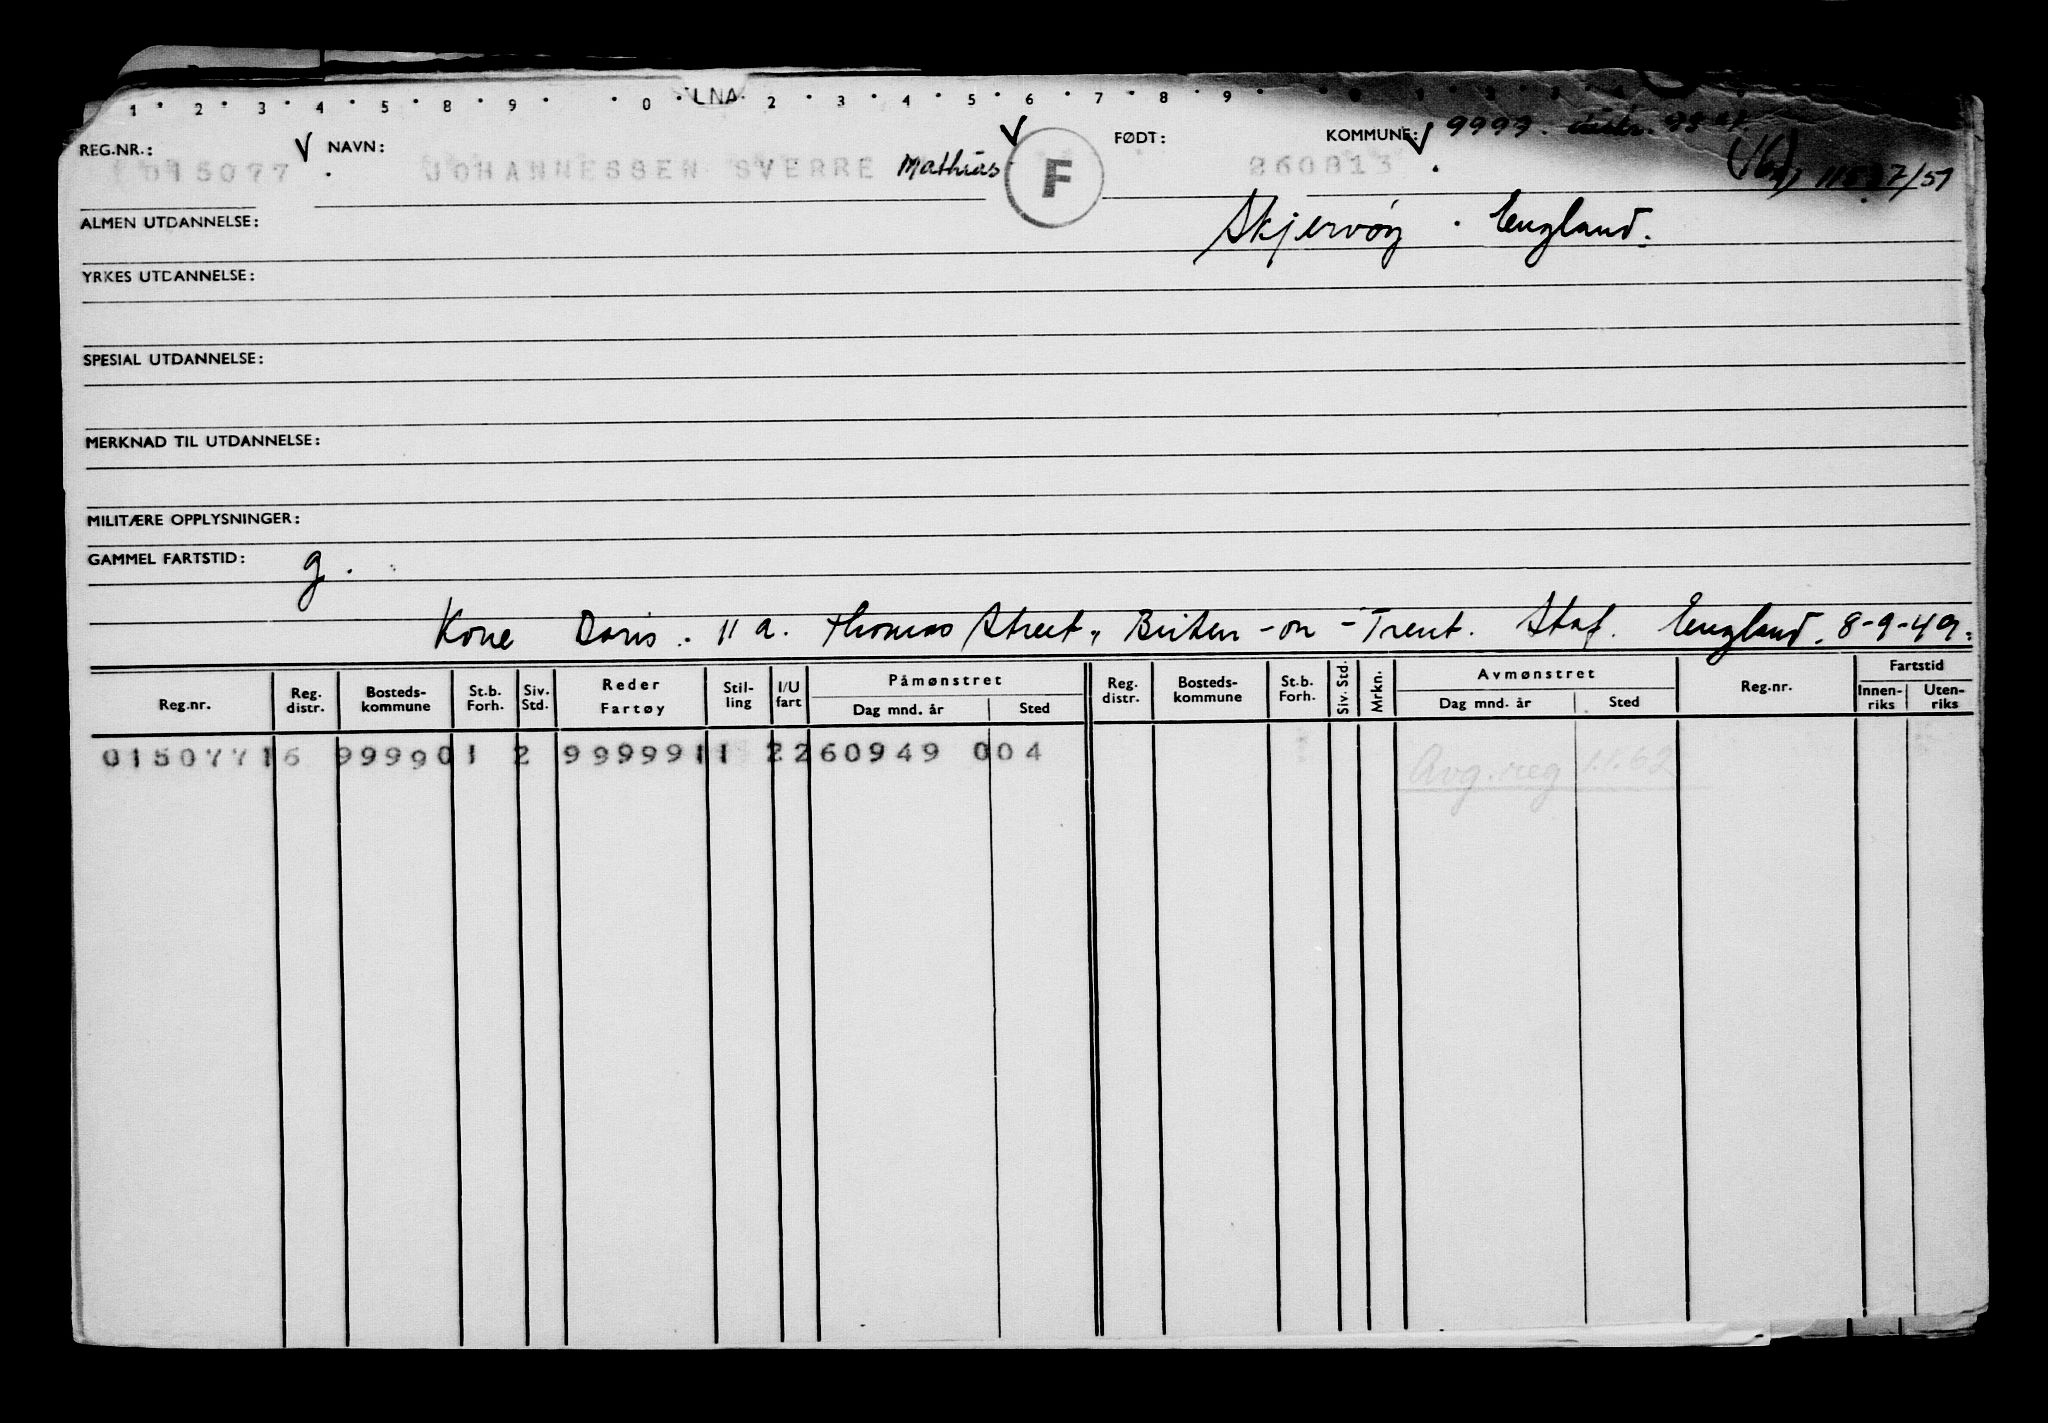 1 2 3 4 5 8 9 0 LNA 2 3 4 5 6 7 8 9
REG.NR.: NAVN: FØDT: KOMMUNE: 9999
015077 JOHANNESSEN SVERRE Mathias F 260813
ALMEN UTDANNELSE: Skjervöy . England.
YRKES UTDANNELSE:
SPESIAL UTDANNELSE:
MERKNAD TIL UTDANNELSE:
MILITÆRE OPPLYSNINGER:
GAMMEL FARTSTID: g.
Kone Doris. 11 a. Thomas Street, Buiten-on-Trent. Staf. England. 8-9-49.
Reg.nr. Reg. distr. Bosteds-kommune St.b. Forh. Siv. Std. Reder Fartøy Stil-ling I/U fart Påmønstret Dag mnd. år Sted Reg. distr. Bosteds-kommune St.b. Forh. Siv. Std. Mrkn. Avmønstret Dag mnd. år Sted Reg.nr. Fartstid Innen-riks Uten-riks
01507716 9999012 99999911 2260949 004 Avg. reg 1.1.62